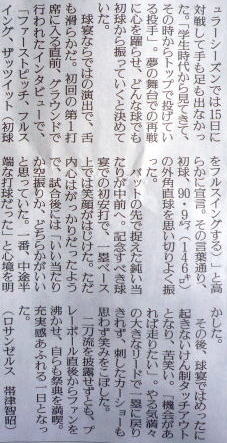 ュラーシーズンでは15日に
対戦して手も足も出なかっ
た。「学生時代から見てきて、
その時からトップで投げてい
る投手」。夢の舞台での再戦
に心を躍らせ、どんな球でも
初球から振っていくと決めて
いた。
球宴ならではの演出で、舌
も滑らかだ。初回の第1打
席に入る直前、グラウンドで
行われたインタビューで、
「ファーストピッチ、フルス
イング、ザッツイット(初球
をフルスイングする)」と高
らかに宣言。その言葉通り、
初球、90・9㍄(146㌔)
の外角直球を思い切りよく振
った。
バットの先で捉えた鈍い当
たりが右前へ。記念すべき球
宴での初安打で、一塁ベース
上では笑顔がはじけた。ただ
内心はがっかりだったよう
で、試合後には「いい当たり
か空振りか、どちらかがいい
と思っていた。一番、中途半
端な打球だった」と心境を明
かした。
その後、球宴ではめったに
起きないけん制タッチアウト
となり、苦笑い。「機会があ
れば走りたい」。やる気満々
の大きなリードで一塁に戻り
きれず、刺したカーショーも
思わず笑みをこぼした。
二刀流を披露せずとも、プ
レーボール直後からファンを
沸かせ、自らも祭典を満喫。
充実感あふれる一日となっ
た。
(ロサンゼルス 帯津智昭)